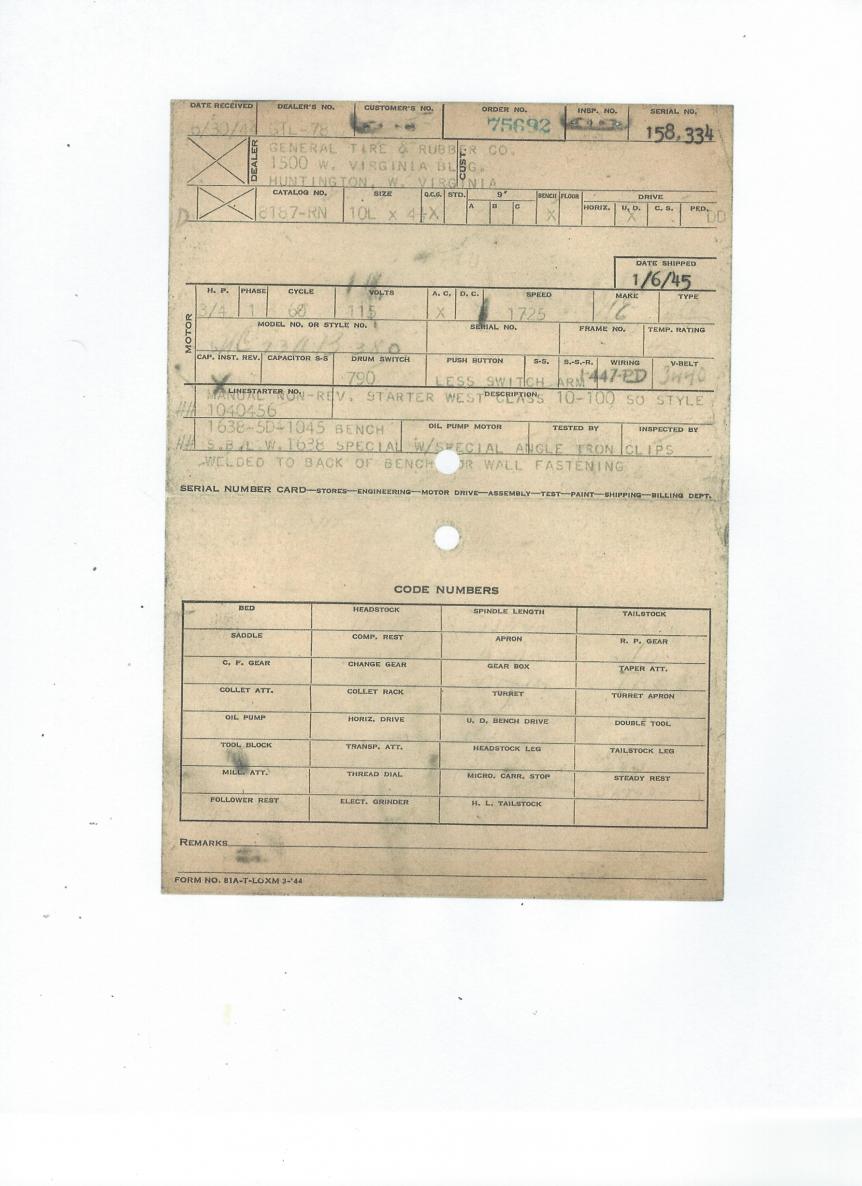 DATE RECEIVED DEALER'S NO. CUSTOMER'S NO. ORDER NO. INSP. NO. SERIAL NO.
6/30/44 GTL-78 75692 158,334
DEALER GENERAL TIRE & RUBBER CO. CUST.
1500 W. VIRGINIA BLDG.
HUNTINGTON, W. VIRGINIA
CATALOG NO. SIZE Q.C.G. STD. 9" BENCH FLOOR DRIVE
A B C HORIZ. U. D. C. S. PED.
D 8187-RN 10L x X X X DD
DATE SHIPPED
1/6/45
MOTOR
H. P. PHASE CYCLE VOLTS A. C. D. C. SPEED MAKE TYPE
3/4 1 60 115 X 1725
MODEL NO. OR STYLE NO. SERIAL NO. FRAME NO. TEMP. RATING
CAP. INST. REV. CAPACITOR S-S DRUM SWITCH PUSH BUTTON S-S. S.-S-R. WIRING V-BELT
X 790 LESS SWITCH ARM 1447-PD
LINESTARTER NO. DESCRIPTION
MANUAL NON-REV. STARTER WEST CLASS 10-100 SO STYLE
HH 1040456
1638-SD-1045 BENCH OIL PUMP MOTOR TESTED BY INSPECTED BY
HH S.B.L.W. 1638 SPECIAL W/SPECIAL ANGLE IRON CLIPS
WELDED TO BACK OF BENCH OR WALL FASTENING
SERIAL NUMBER CARD—STORES—ENGINEERING—MOTOR DRIVE—ASSEMBLY—TEST—PAINT—SHIPPING—BILLING DEPT.
CODE NUMBERS
BED HEADSTOCK SPINDLE LENGTH TAILSTOCK
SADDLE COMP. REST APRON R. P. GEAR
C. F. GEAR CHANGE GEAR GEAR BOX TAPER ATT.
COLLET ATT. COLLET RACK TURRET TURRET APRON
OIL PUMP HORIZ. DRIVE U. D. BENCH DRIVE DOUBLE TOOL
TOOL BLOCK TRANSP. ATT. HEADSTOCK LEG TAILSTOCK LEG
MILL. ATT. THREAD DIAL MICRO. CARR. STOP STEADY REST
FOLLOWER REST ELECT. GRINDER H. L. TAILSTOCK
REMARKS
FORM NO. 81A-T-LOXM 3-'44